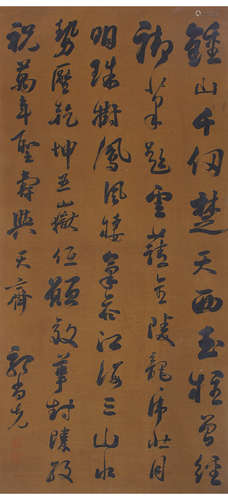 鍾山千仞楚天西玉柱曾經
御筆題雲護金陵龍虎壯月
明珠樹鳳凰棲氣吞江海三山小
勢壓乾坤五嶽低願效華封陳敬
祝萬年聖壽與天齊
郭尚先